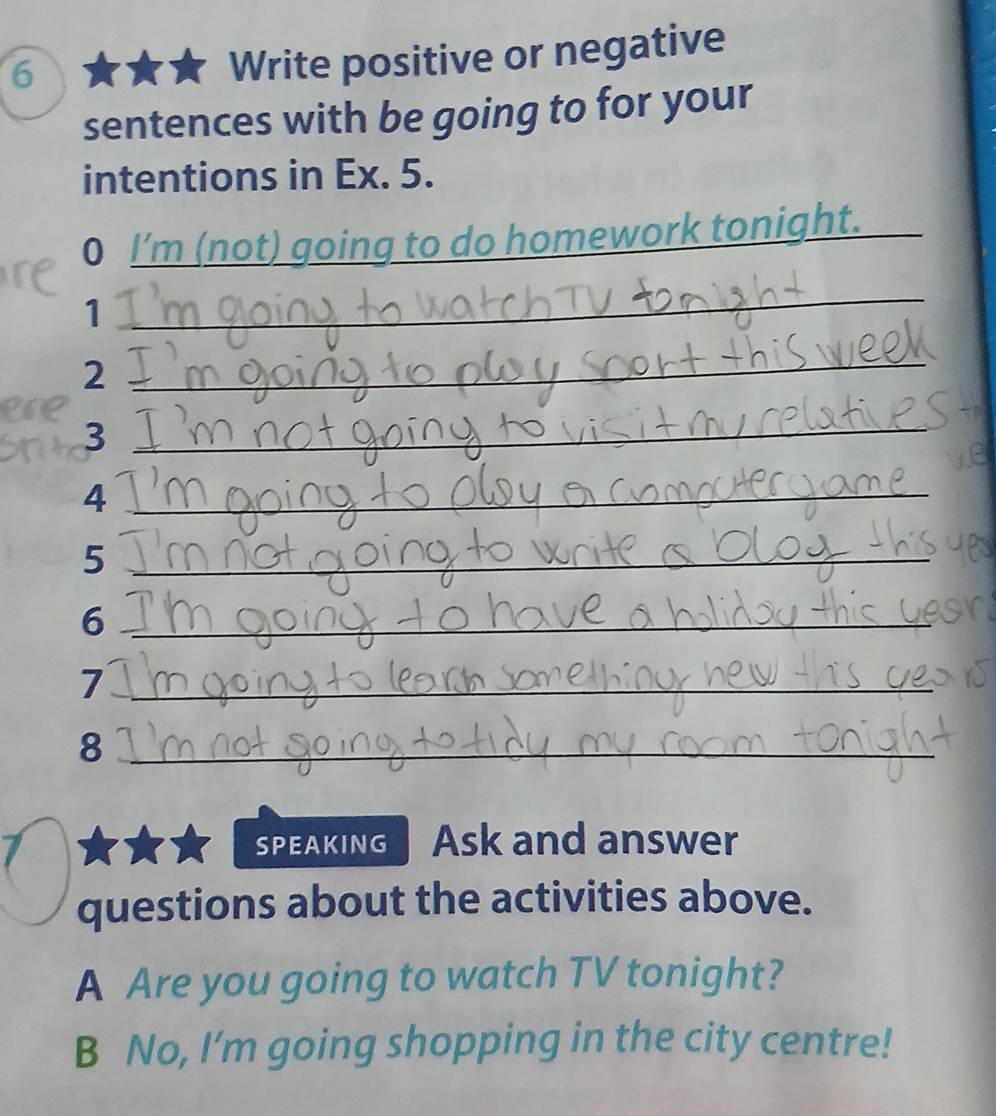 6 ★★★ Write positive or negative
sentences with be going to for your
intentions in Ex. 5.
0 I'm (not) going to do homework tonight.
1 I'm going to watch TV tonight
2 I'm going to play sport this week
3 I'm not going to visit my relatives
4 I'm going to play a computer game
5 I'm not going to write a blog this
6 I'm going to have a holiday this year
7 I'm going to learn something new this years
8 I'm not going to tidy my room tonight
7 ★★★ SPEAKING Ask and answer
questions about the activities above.
A Are you going to watch TV tonight?
B No, I'm going shopping in the city centre!